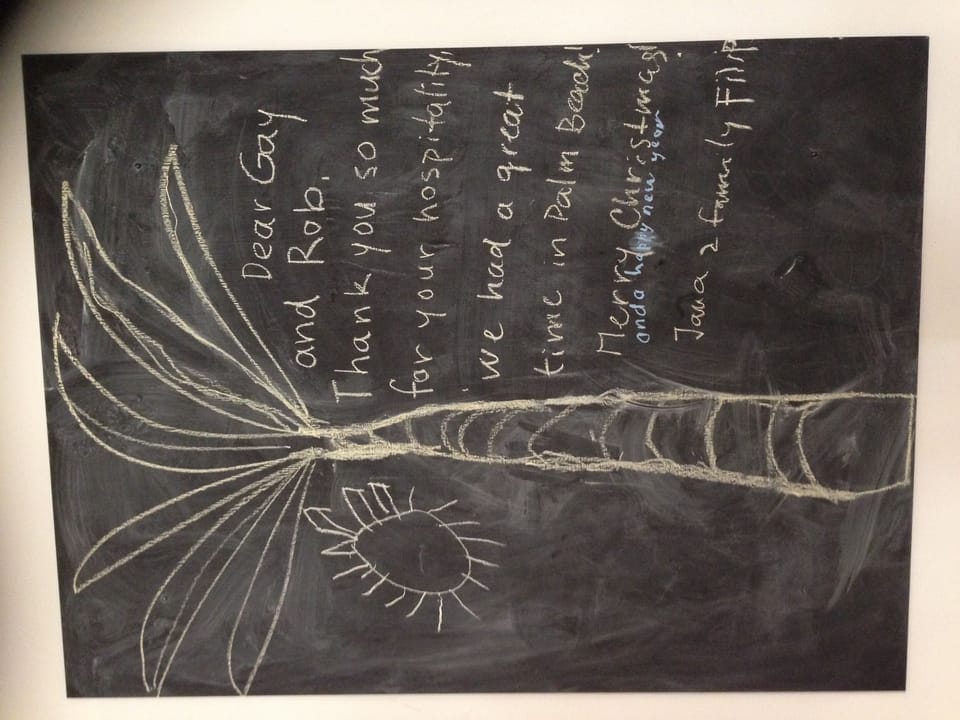 Dear Gay
and Rob.
Thank you so much
for your hospitality,
we had a great
time in Palm Beach!
Merry Christmas
and a happy new year
Jana & family Filip